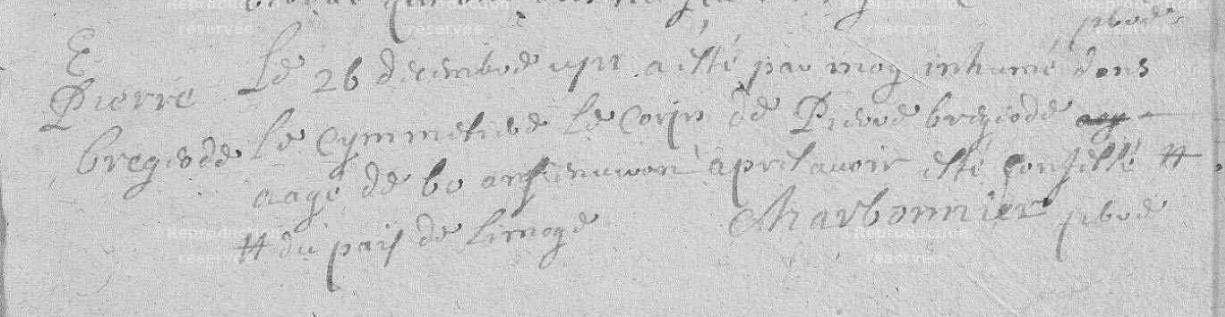 pbre
E
Pierre
bregiere
Le 26 decembre a esté par moy inhumé dans
Le Cymmetiere Le Corps de Pierre bregiere
aagé de 60 ans environ apres avoir esté Confessé #
Charbonnier pbre
# du pais de Limoge